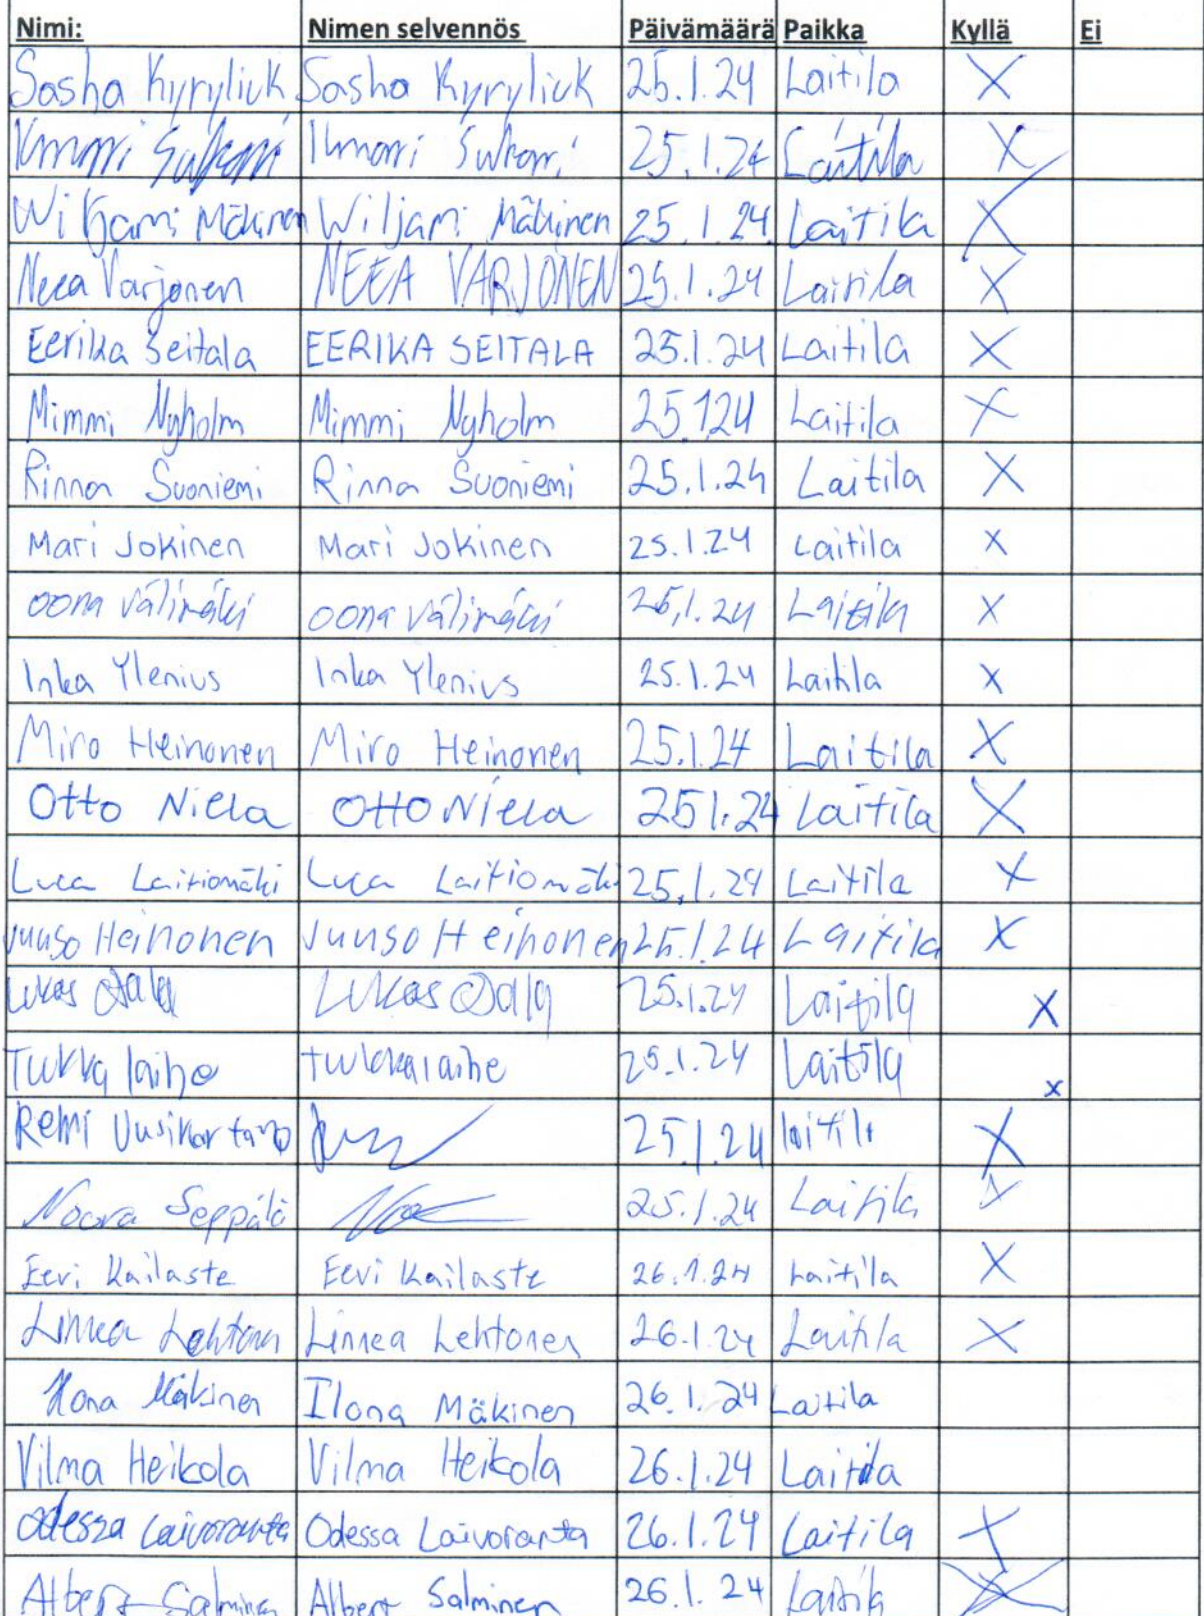 Nimi: Nimen selvennös Päivämäärä Paikka Kyllä Ei
Sasha Kyryliuk Sasha Kyryliuk 25.1.24 Laitila X
Ilmari Ilmari 25.1.24 Laitila X
Wiljami Mäkinen Wiljami Mäkinen 25.1.24 Laitila X
Neea Varjonen NEEA VARJONEN 25.1.24 Laitila X
Eerika Seitala EERIKA SEITALA 25.1.24 Laitila X
Mimmi Nyholm Mimmi Nyholm 25.124 Laitila X
Rinna Suoniemi Rinna Suoniemi 25.1.24 Laitila X
Mari Jokinen Mari Jokinen 25.1.24 Laitila X
oona välimäki oona välimäki 25.1.24 Laitila X
Inka Ylenius Inka Ylenius 25.1.24 Laitila X
Miro Heinonen Miro Heinonen 25.1.24 Laitila X
Otto Niela Otto Niela 25 1.24 Laitila X
Luca Laitiomäki Luca Laitiomäki 25.1.24 Laitila X
Juuso Heinonen Juuso Heinonen 25.1.24 Laitila X
Lukas Lukas 25.1.24 Laitila X
Tukka laiho 25.1.24 Laitila x
Remi Uusikartano 25.1.24 X
Noora Seppälä 25.1.24 Laitila X
Eevi Kailaste Eevi Kailaste 26.1.24 Laitila X
Linnea Lehtonen Linnea Lehtonen 26.1.24 Laitila X
Ilona Mäkinen Ilona Mäkinen 26.1.24 Laitila
Vilma Heikola Vilma Heikola 26.1.24 Laitila
Odessa Laivoranta Odessa Laivoranta 26.1.24 Laitila X
Albert Salminen Albert Salminen 26.1.24 Laitila X